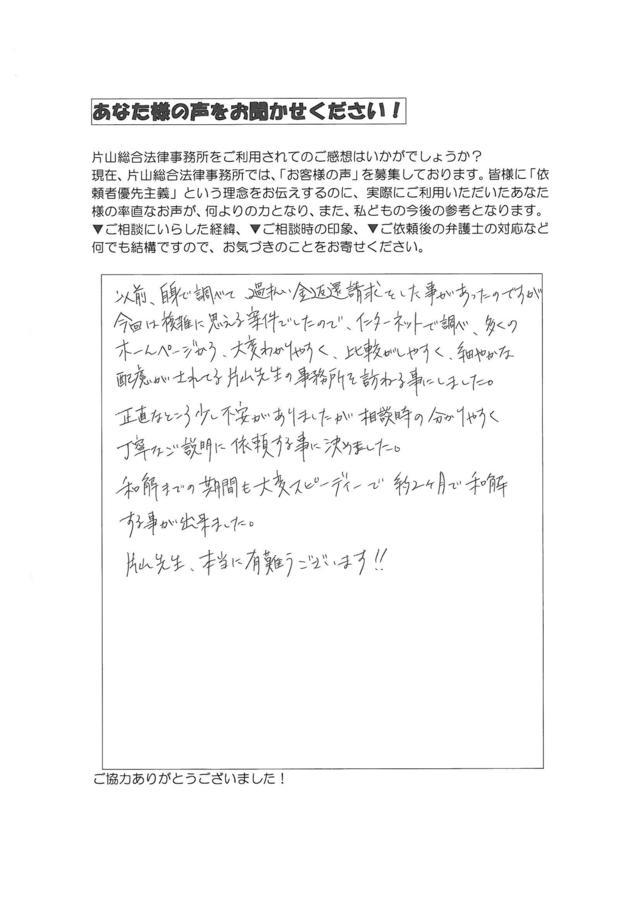 あなた様の声をお聞かせください！
片山総合法律事務所をご利用されてのご感想はいかがでしょうか？
現在、片山総合法律事務所では、「お客様の声」を募集しております。皆様に「依
頼者優先主義」という理念をお伝えするのに、実際にご利用いただいたあなた
様の率直なお声が、何よりの力となり、また、私どもの今後の参考となります。
▼ご相談にいらした経緯、▼ご相談時の印象、▼ご依頼後の弁護士の対応など
何でも結構ですので、お気づきのことをお寄せください。
以前、自身で調べて過払い金返還請求をした事があったのですが
今回は複雑に思える案件でしたので、インターネットで調べ、多くの
ホームページから、大変わかりやすく、比較がしやすく、細やかな
配慮がされてる片山先生の事務所を訪わる事にしました。
正直なところ少し不安がありましたが相談時の分かりやすく
丁寧なご説明に依頼する事に決めました。
和解までの期間も大変スピーディーで約2ヶ月で和解
する事が出来ました。
片山先生、本当に有難うございます!!
ご協力ありがとうございました！